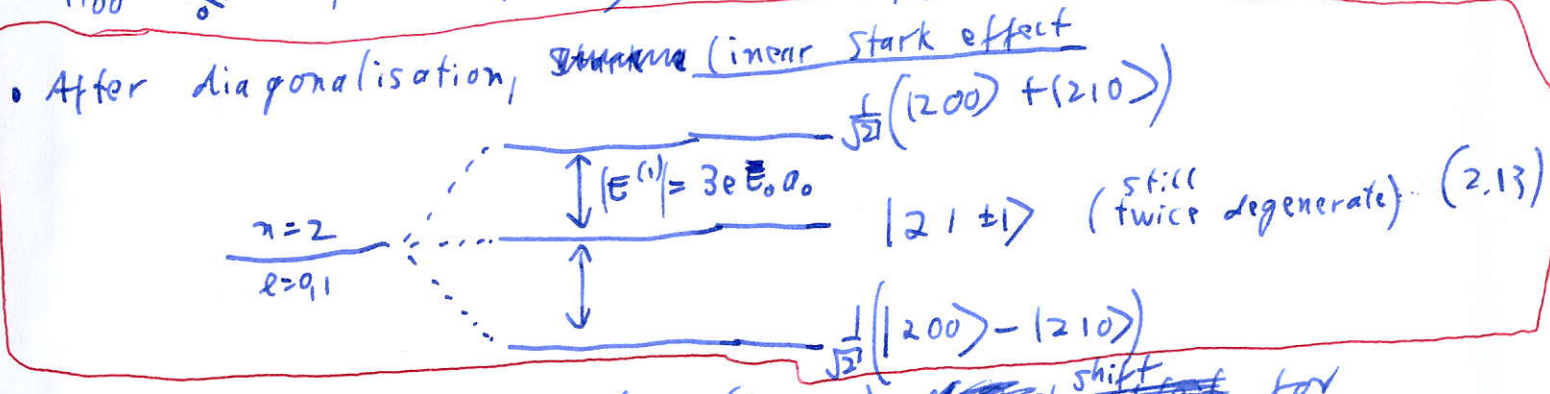 • After diagonalisation, linear Stark effect
1/√2 (|200⟩ + |210⟩)
|E⁽¹⁾| = 3eE₀a₀
|2 1 ±1⟩ (still twice degenerate) (2.13)
n=2
l=0,1
1/√2 (|200⟩ - |210⟩)
shift for